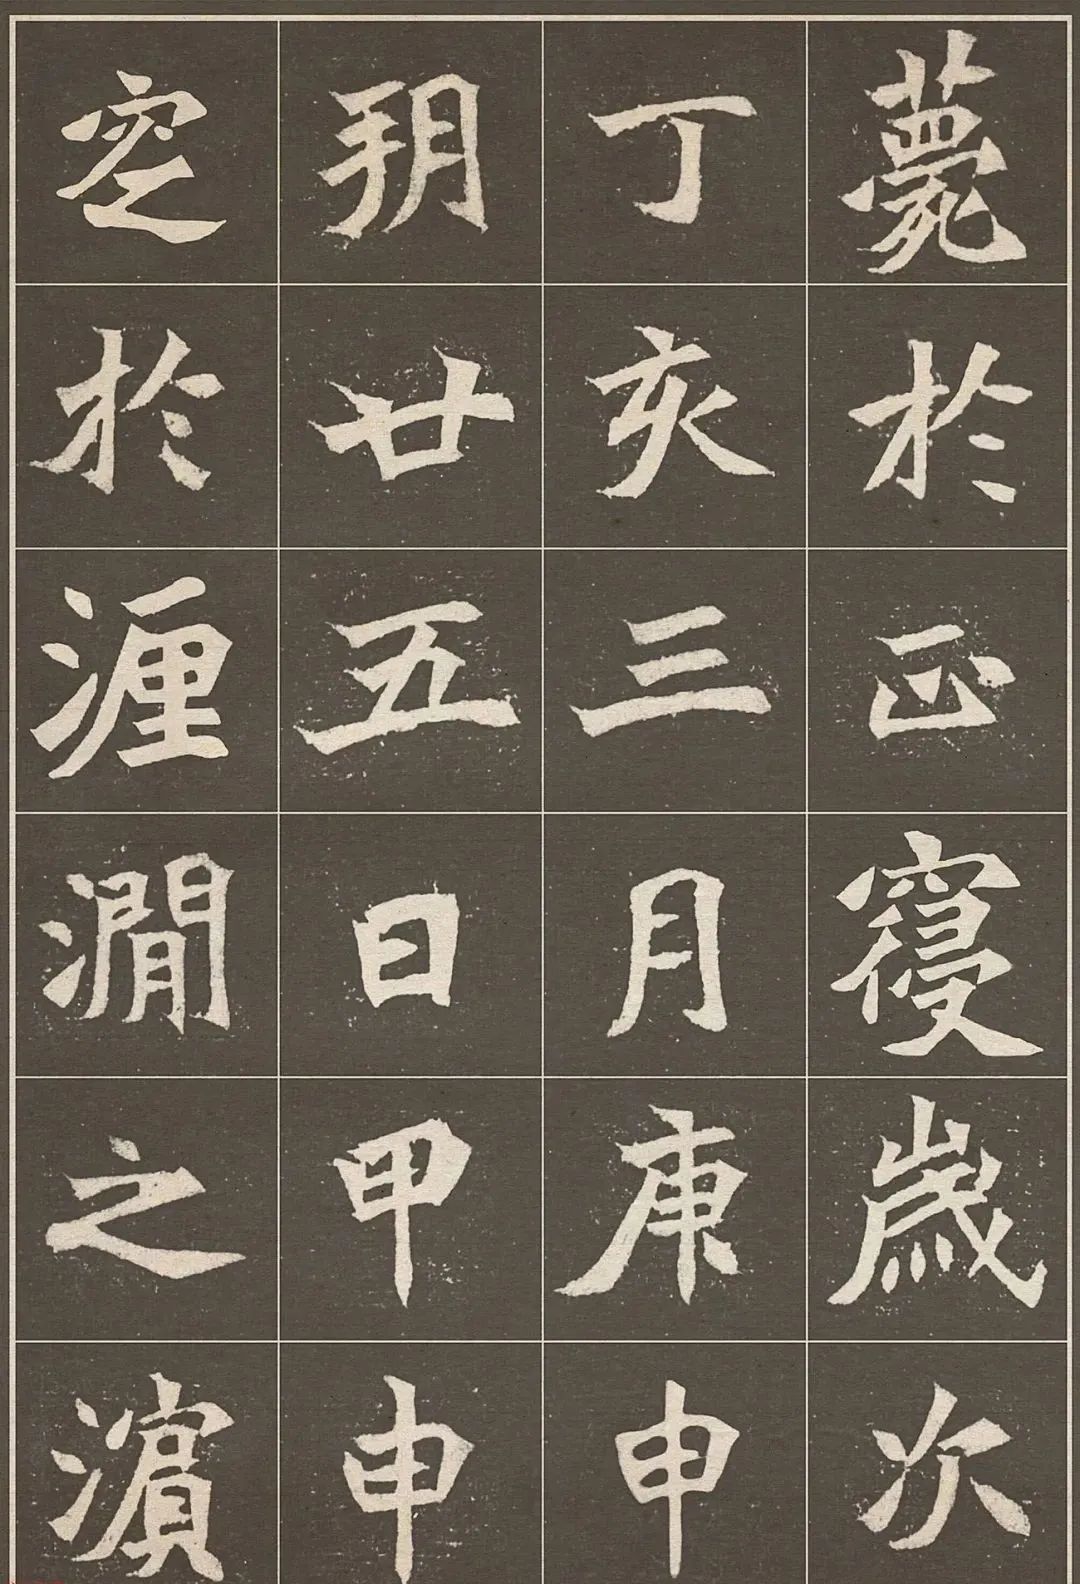 薨於正寑歲次
丁亥三月庚申
朔廿五日甲申
窆於瀍澗之濱